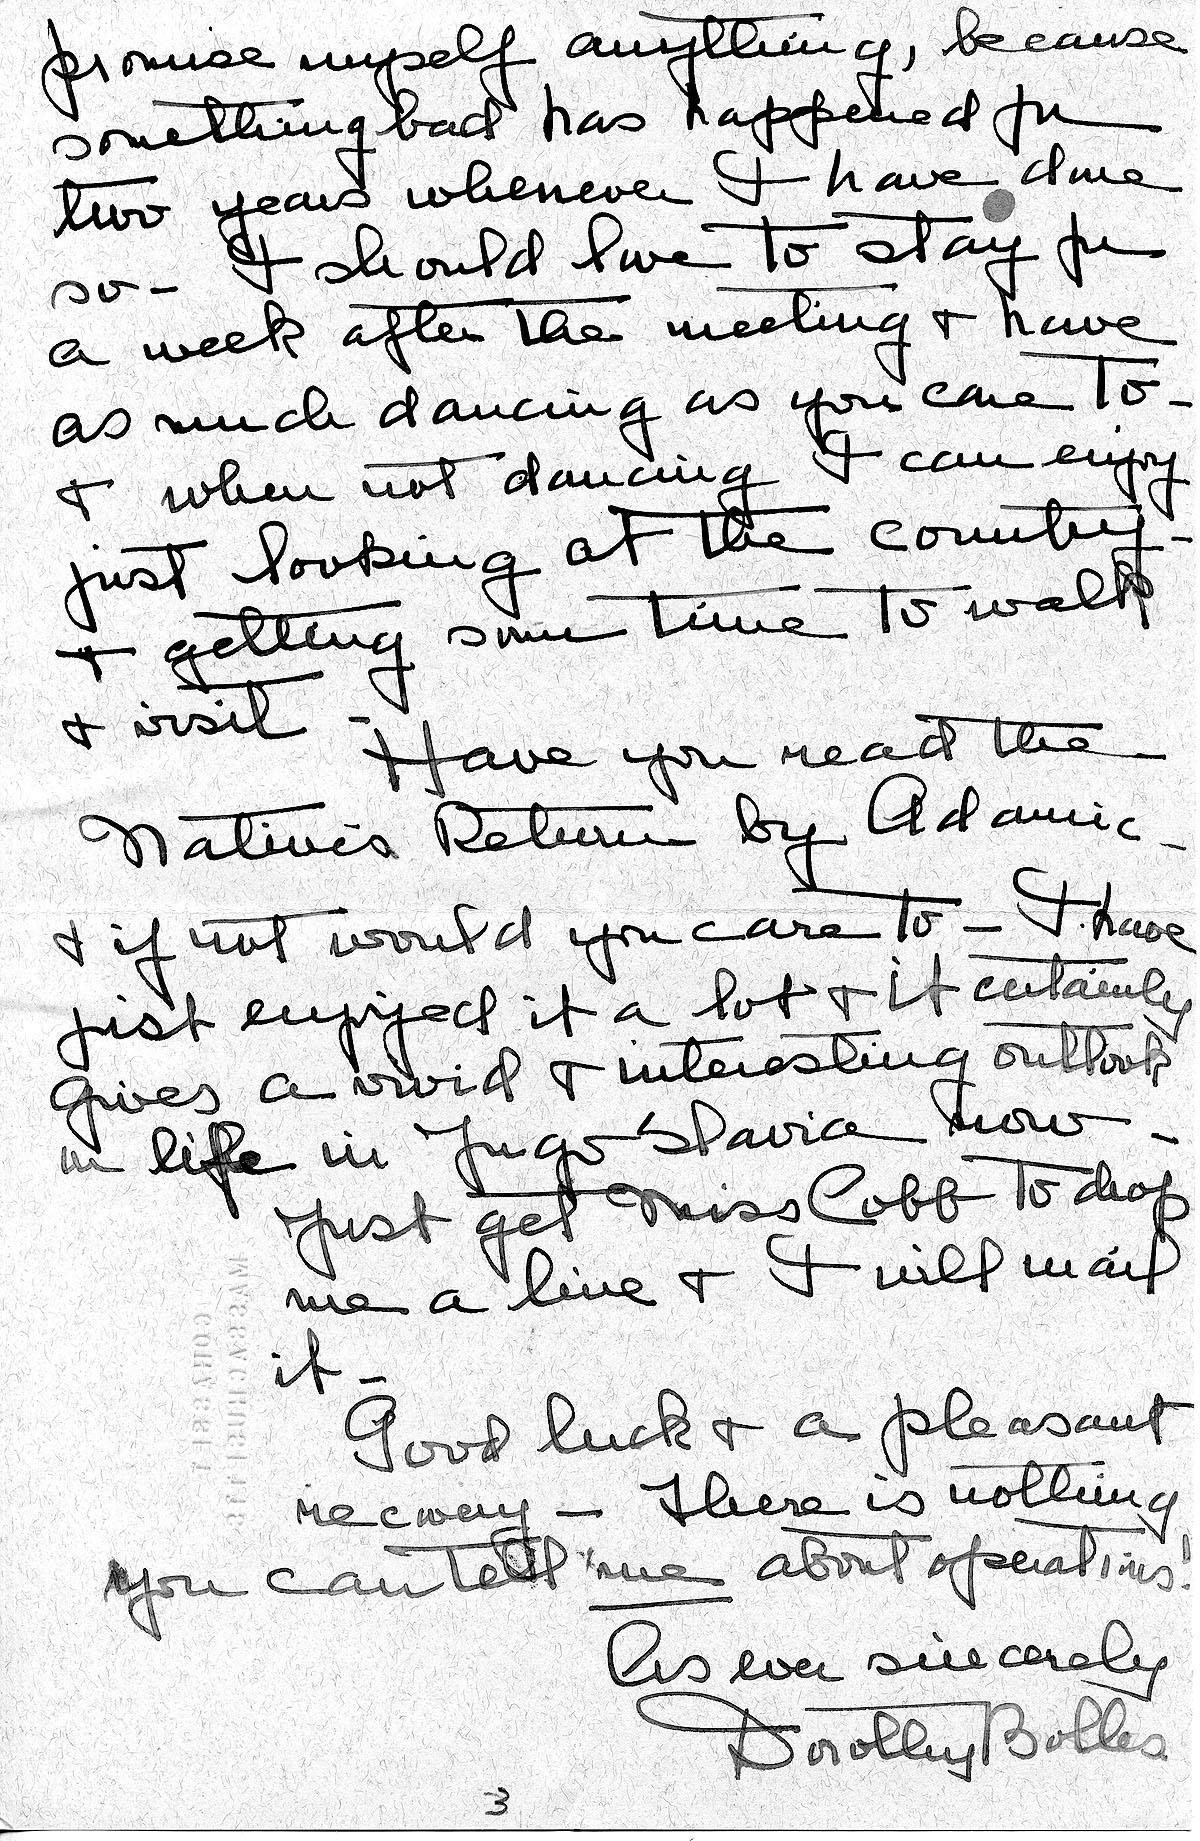 promise myself anything, because
something bad has happened for
two years whenever I have done
so - I should love to stay for
a week after the meeting & have
as much dancing as you care to -
& when not dancing I can enjoy
just looking at the country -
& getting some time to walk
& visit -
Have you read the
Native's Return by Adamic -
& if not would you care to - I have
just enjoyed it a lot & it certainly
gives a vivid & interesting outlook
on life in Jugo Slavia now -
Just get Miss Cobb to drop
me a line & I will mail
it -
Good luck & a pleasant
recovery - There is nothing
you can tell me about operations!
As ever sincerely
Dorothy Bolles
3